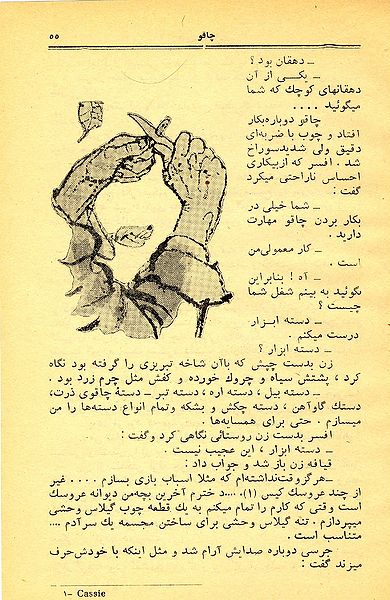 چاقو
۵۵
ــ دهقان بود ؟
ــ یکــی از آن
دهقانهای کوچك که شما
میگوئید ....
چاقو دوباره‌بکار
افتاد و چوب با ضربه‌ای
دقیق ولی شدیدسوراخ
شد . افسر که ازبیکاری
احساس ناراحتی میکرد
گفت :
ــ شما خیلی در
بکار بردن چاقو مهارت
دارید .
ــ کار معمولی‌من
است .
ــ آه ! بنابراین
بگوئید به بینم شغل شما
چیست ؟
ــ دسته ابــزار
درست میکنم .
ــ دسته ابزار ؟
زن بدست چپش که باآن شاخه تبریزی را گرفته بود نگاه
کرد ، پشتش سیاه و چروك خورده و کفش مثل چرم زرد بود .
ــ دسته بیل ، دسته اره ، دسته تبر ــ دستهٔ چاقوی ذرت،
دستك گاوآهن ، دسته چکش و بشکه وتمام انواع دسته‌ها را من
میسازم . حتی برای همسایه‌ها .
افسر بدست زن روستائی نگاهی کرد وگفت :
ــ دسته ابزار ، این عجیب نیست .
قیافه زن باز شد و جواب داد :
ــهرگزوقت‌نداشته‌ام که مثلا اسباب بازی بسازم .... غیر
از چند عروسك کیس (۱)....د خترم آخرین بچه‌من دیوانه عروسك
است وقتی که کارم را تمام میکنم به یك قطعه چوب گیلاس وحشی
میپردازم . تنه گیلاس وحشی برای ساختن مجسمه یك سرآدم ....
متناسب است .
جرسی دوباره صدایش آرام شد و مثل اینکه با خودش‌حرف
میزند گفت :
۱- Cassie